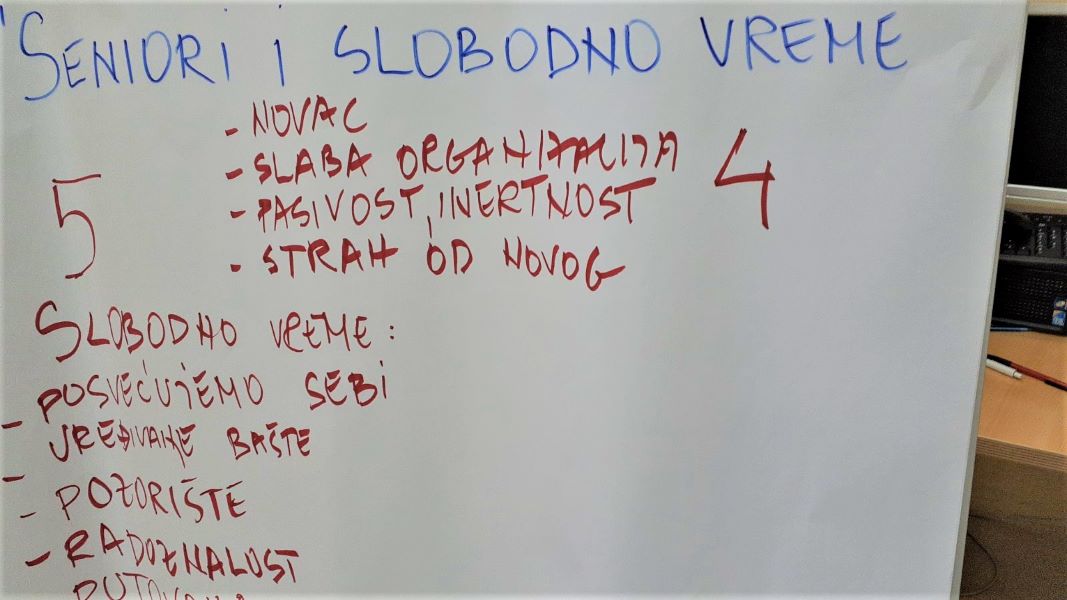 "SENIORI I SLOBODNO VREME
- NOVAC
- SLABA ORGANIZACIJA
- PASIVOST, INERTNOST
- STRAH OD NOVOG
5
4
SLOBODNO VREME:
- POSVEĆUJEMO SEBI
- UREĐIVANJE BAŠTE
- POZORIŠTE
- RADOZNALOST